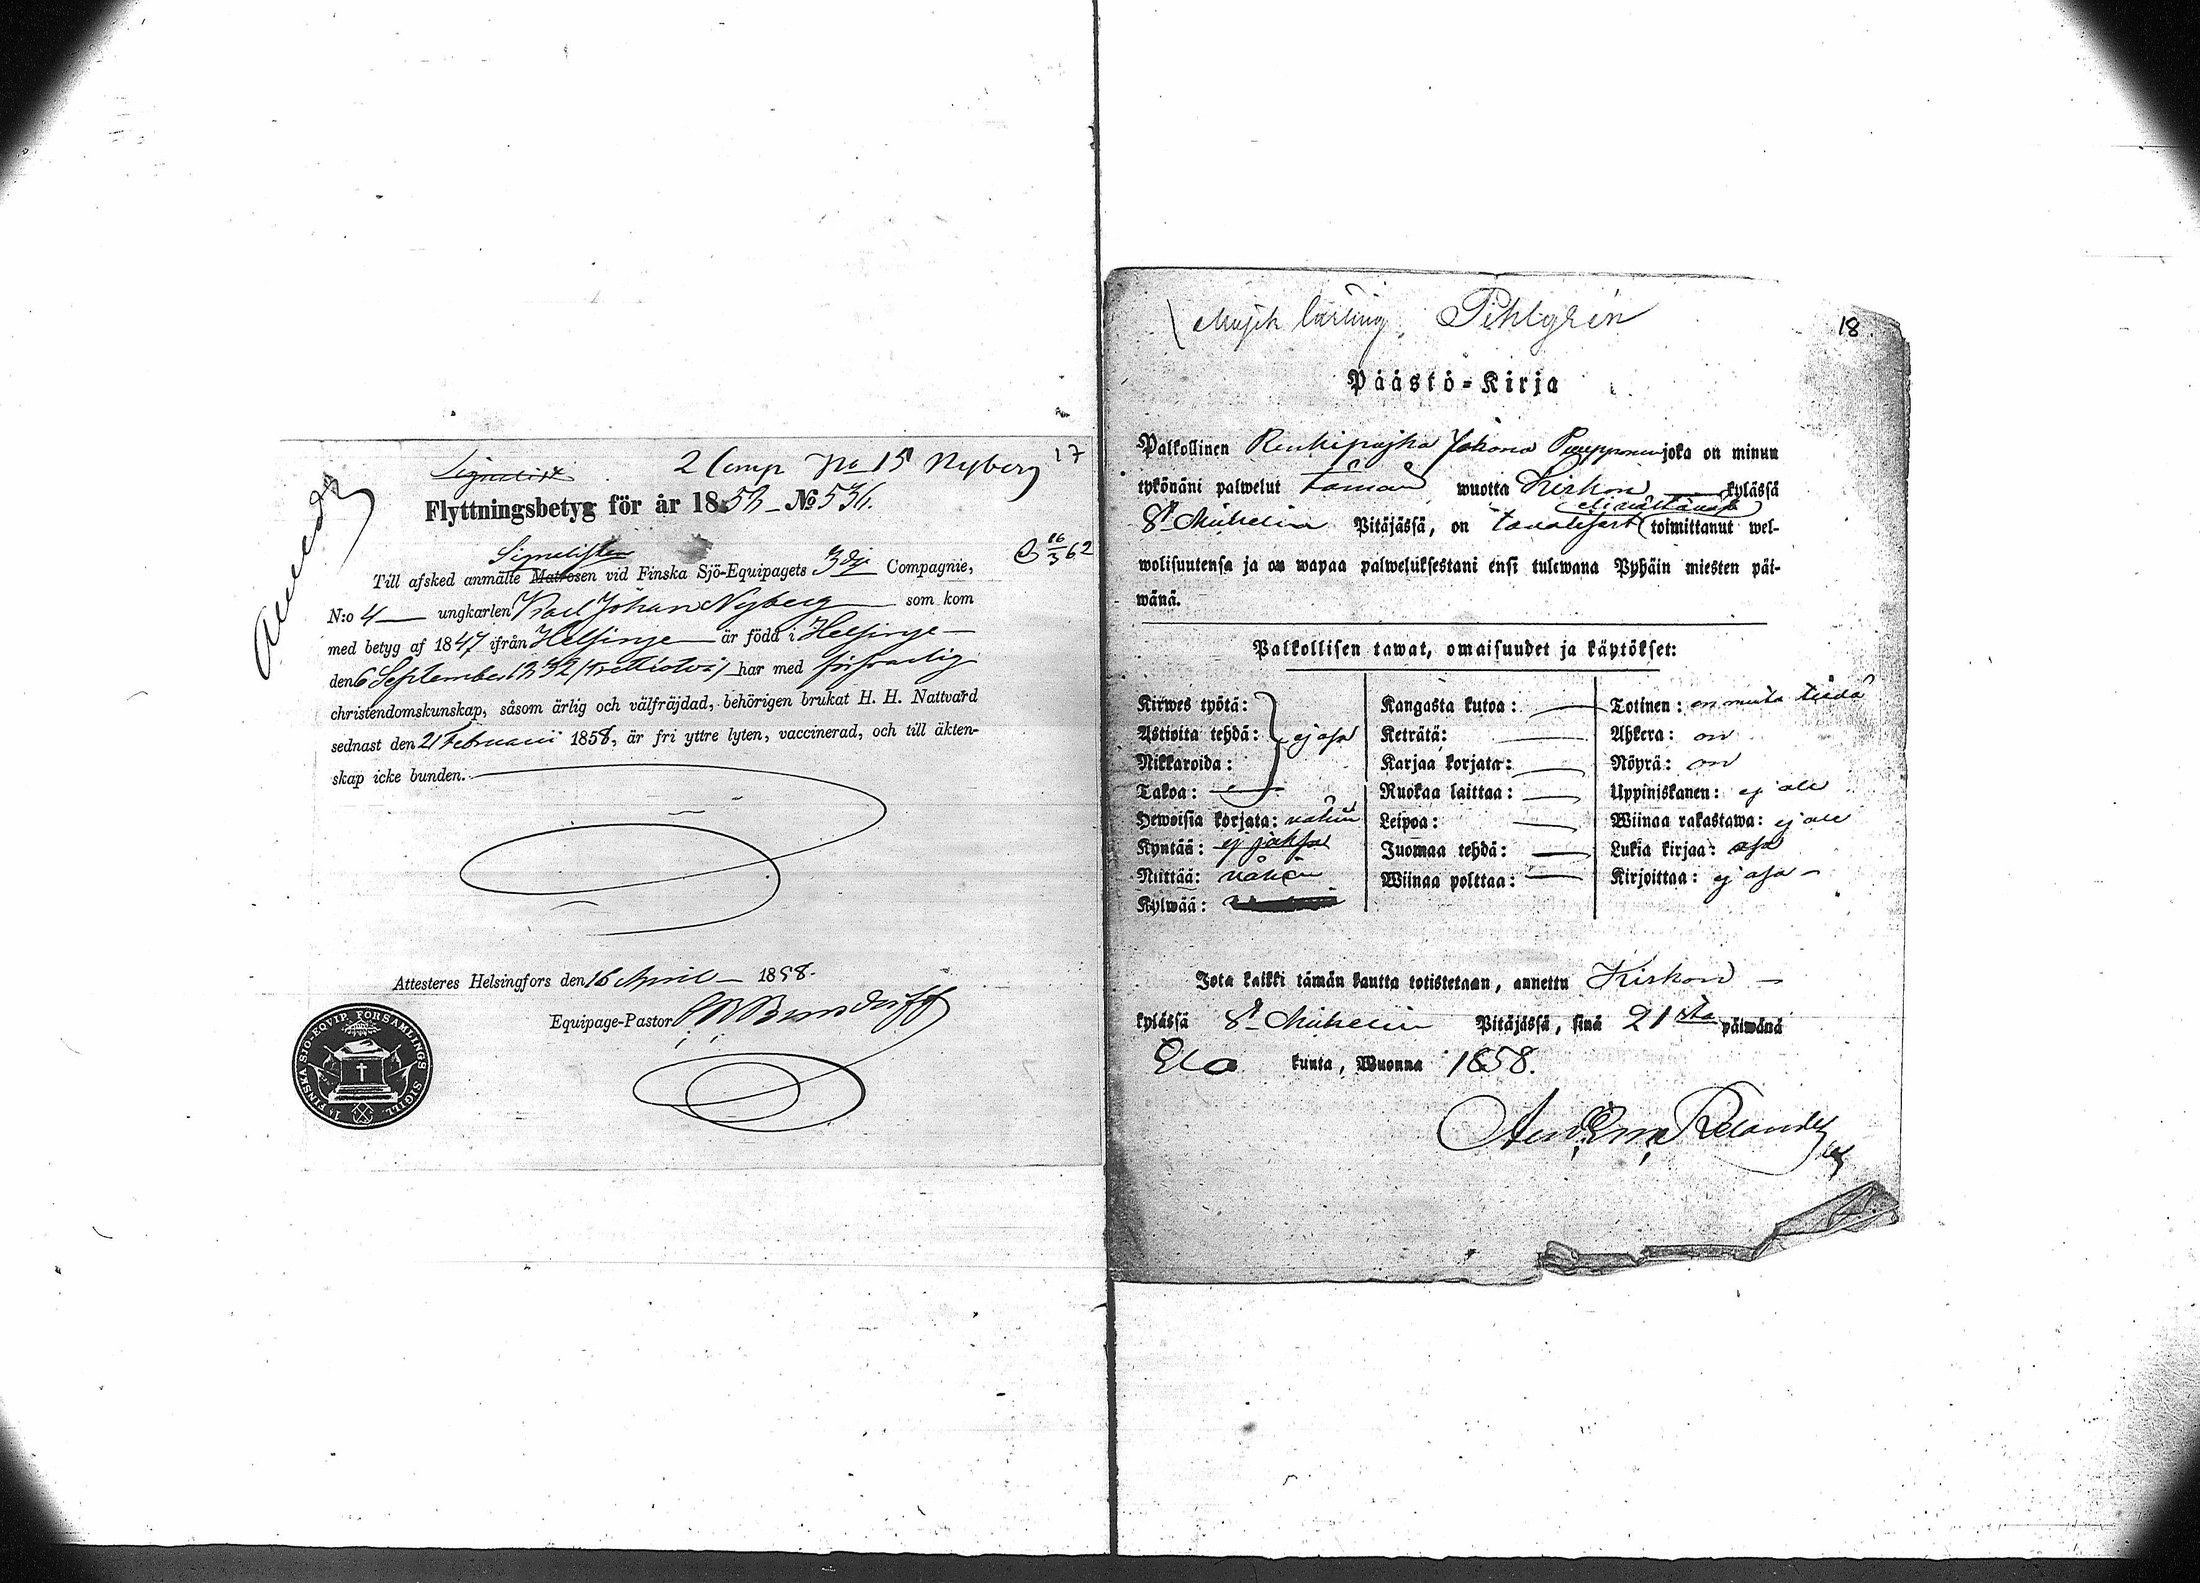 Signalist 2 Comp No 15 Nyberg 17
Flyttningsbetyg för år 1858 – No 536.
Signalisten
Till afsked anmälte Matrosen vid Finska Sjö-Equipagets 3dje Compagnie,
16/3 62
N:o 4 — ungkarlen Karl Johan Nyberg — som kom
med betyg af 1847 ifrån Helsinge — är född i Helsinge —
den 6 September 1832 (trettiotvå) har med försvarlig
christendomskunskap, såsom ärlig och välfräjdad, behörigen brukat H. H. Nattvard
sednast den 21 Februarii 1858, är fri yttre lyten, vaccinerad, och till äkten-
skap icke bunden.
Attesteres Helsingfors den 16 April — 1858.
Equipage-Pastor
1a FINSKA SJÖ-EQVIP. FÖRSAMLINGS SIGILL.
Musik lärling Pihlgrén
18.
Päästö-Kirja
Palkollinen Renkipojka Johana Puupponen joka on minun
tykönäni palwelut tämän wuotta Kirkon — kylässä
St Mickelin Pitäjässä, on tawalisest (toimittanut wel-
wolisuutensa ja on wapaa palweluksestani ensi tulewana Pyhäin miesten päi-
wänä.
Palkollisen tawat, omaisuudet ja käytökset:
Kirwes työtä:
Astioita tehdä: ej osa
Nikkaroida:
Takoa: —
Hewoisia korjata: vähin
Kyntää: ej jaksa
Niittää: vähin
Kylwää:
Kangasta kutoa: —
Keträtä: —
Karjaa korjata: —
Ruokaa laittaa: —
Leipoa: —
Juomaa tehdä: —
Wiinaa polttaa: —
Totinen: en muuta tiedä
Ahkera: on
Nöyrä: on
Uppiniskanen: ej ole
Wiinaa rakastawa: ej ole
Lukia kirjaa: osa
Kirjoittaa: ej osa —
Jota kaikki tämän kautta totistetaan, annettu Kirkon —
kylässä St Mickelin Pitäjässä, sinä 21sta päiwänä
Elo kuuta, Wuonna 1858.